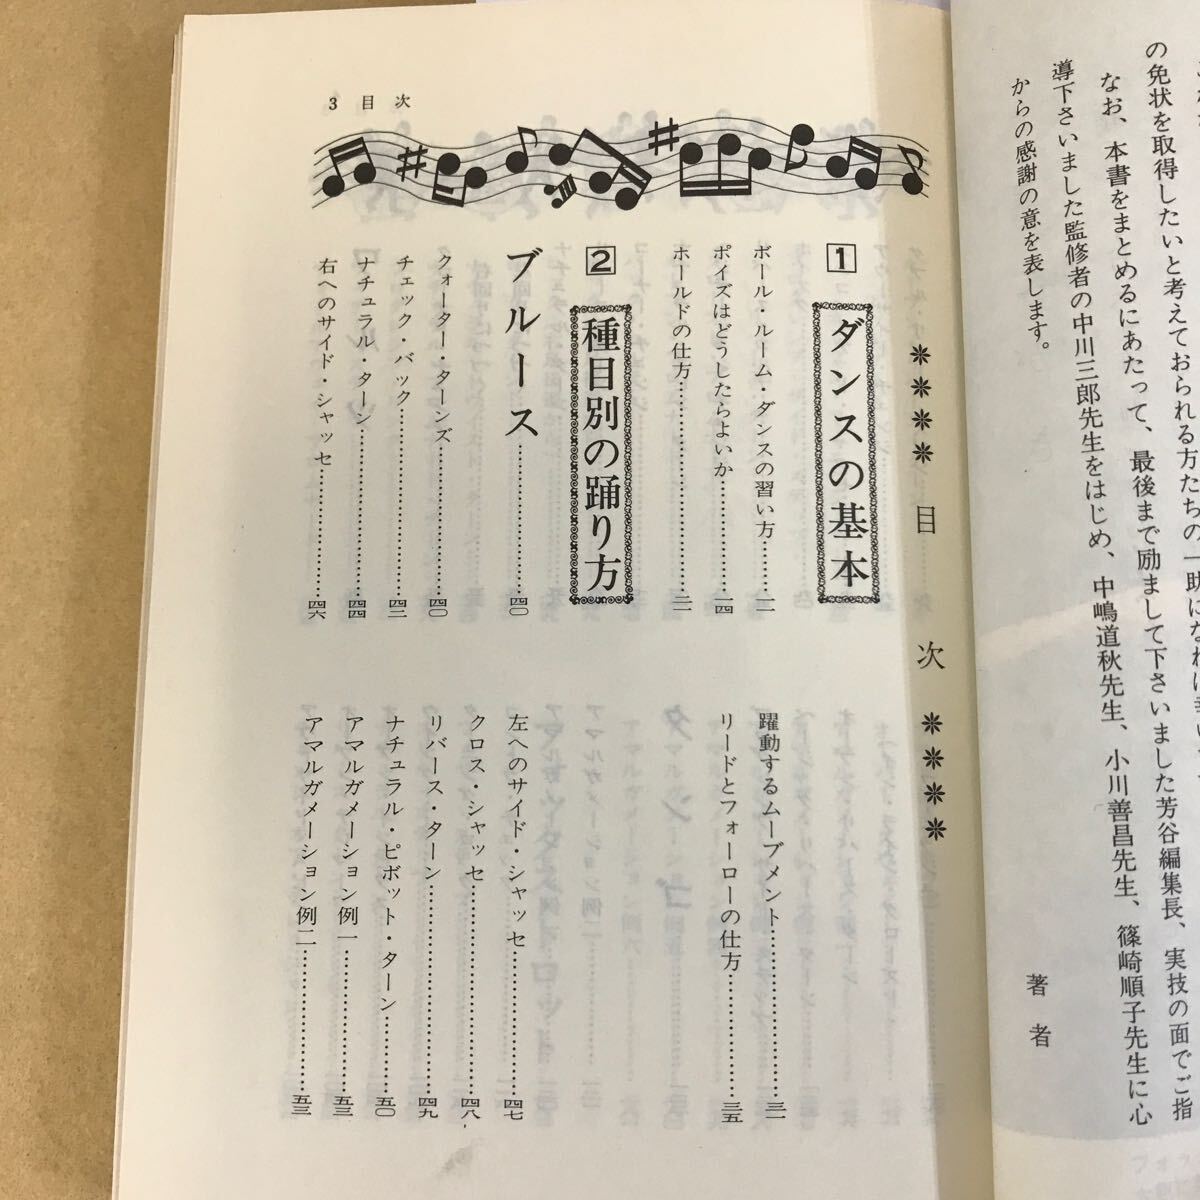 の免状を取得したいと考えておられる方たちの一助になれば幸い
なお、本書をまとめるにあたって、最後まで励まして下さいました芳谷編集長、実技の面でご指
導下さいました監修者の中川三郎先生をはじめ、中嶋道秋先生、小川善昌先生、篠崎順子先生に心
からの感謝の意を表します。
著者
3 目次
＊＊＊＊目次＊＊＊＊
1 ダンスの基本
ボール・ルーム・ダンスの習い方……一一
ポイズはどうしたらよいか……一四
ホールドの仕方……二一
躍動するムーブメント……三一
リードとフォローの仕方……三五
2 種目別の踊り方
ブルース……四〇
クォーター・ターンズ……四〇
チェック・バック……四三
ナチュラル・ターン……四四
右へのサイド・シャッセ……四六
左へのサイド・シャッセ……四七
クロス・シャッセ……四八
リバース・ターン……四九
ナチュラル・ピボット・ターン……五〇
アマルガメーション例一……五三
アマルガメーション例二……五三